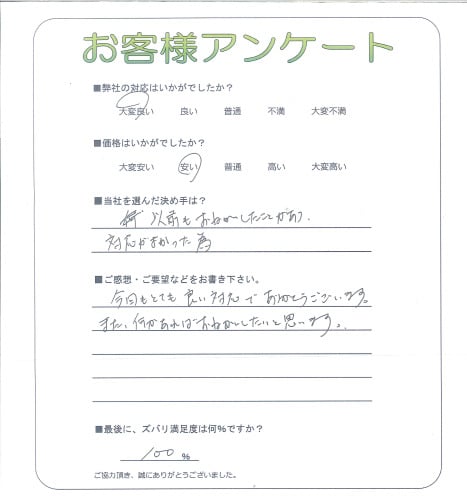 お客様アンケート
■弊社の対応はいかがでしたか？
大変良い 良い 普通 不満 大変不満
■価格はいかがでしたか？
大変安い 安い 普通 高い 大変高い
■当社を選んだ決め手は？
以前もおねがいしたことがあり、
対応がよかった為
■ご感想・ご要望などをお書き下さい。
今回もとても良い対応でありがとうございます。
また、何かあればおねがいしたいと思います。
■最後に、ズバリ満足度は何％ですか？
100 ％
ご協力頂き、誠にありがとうございました。